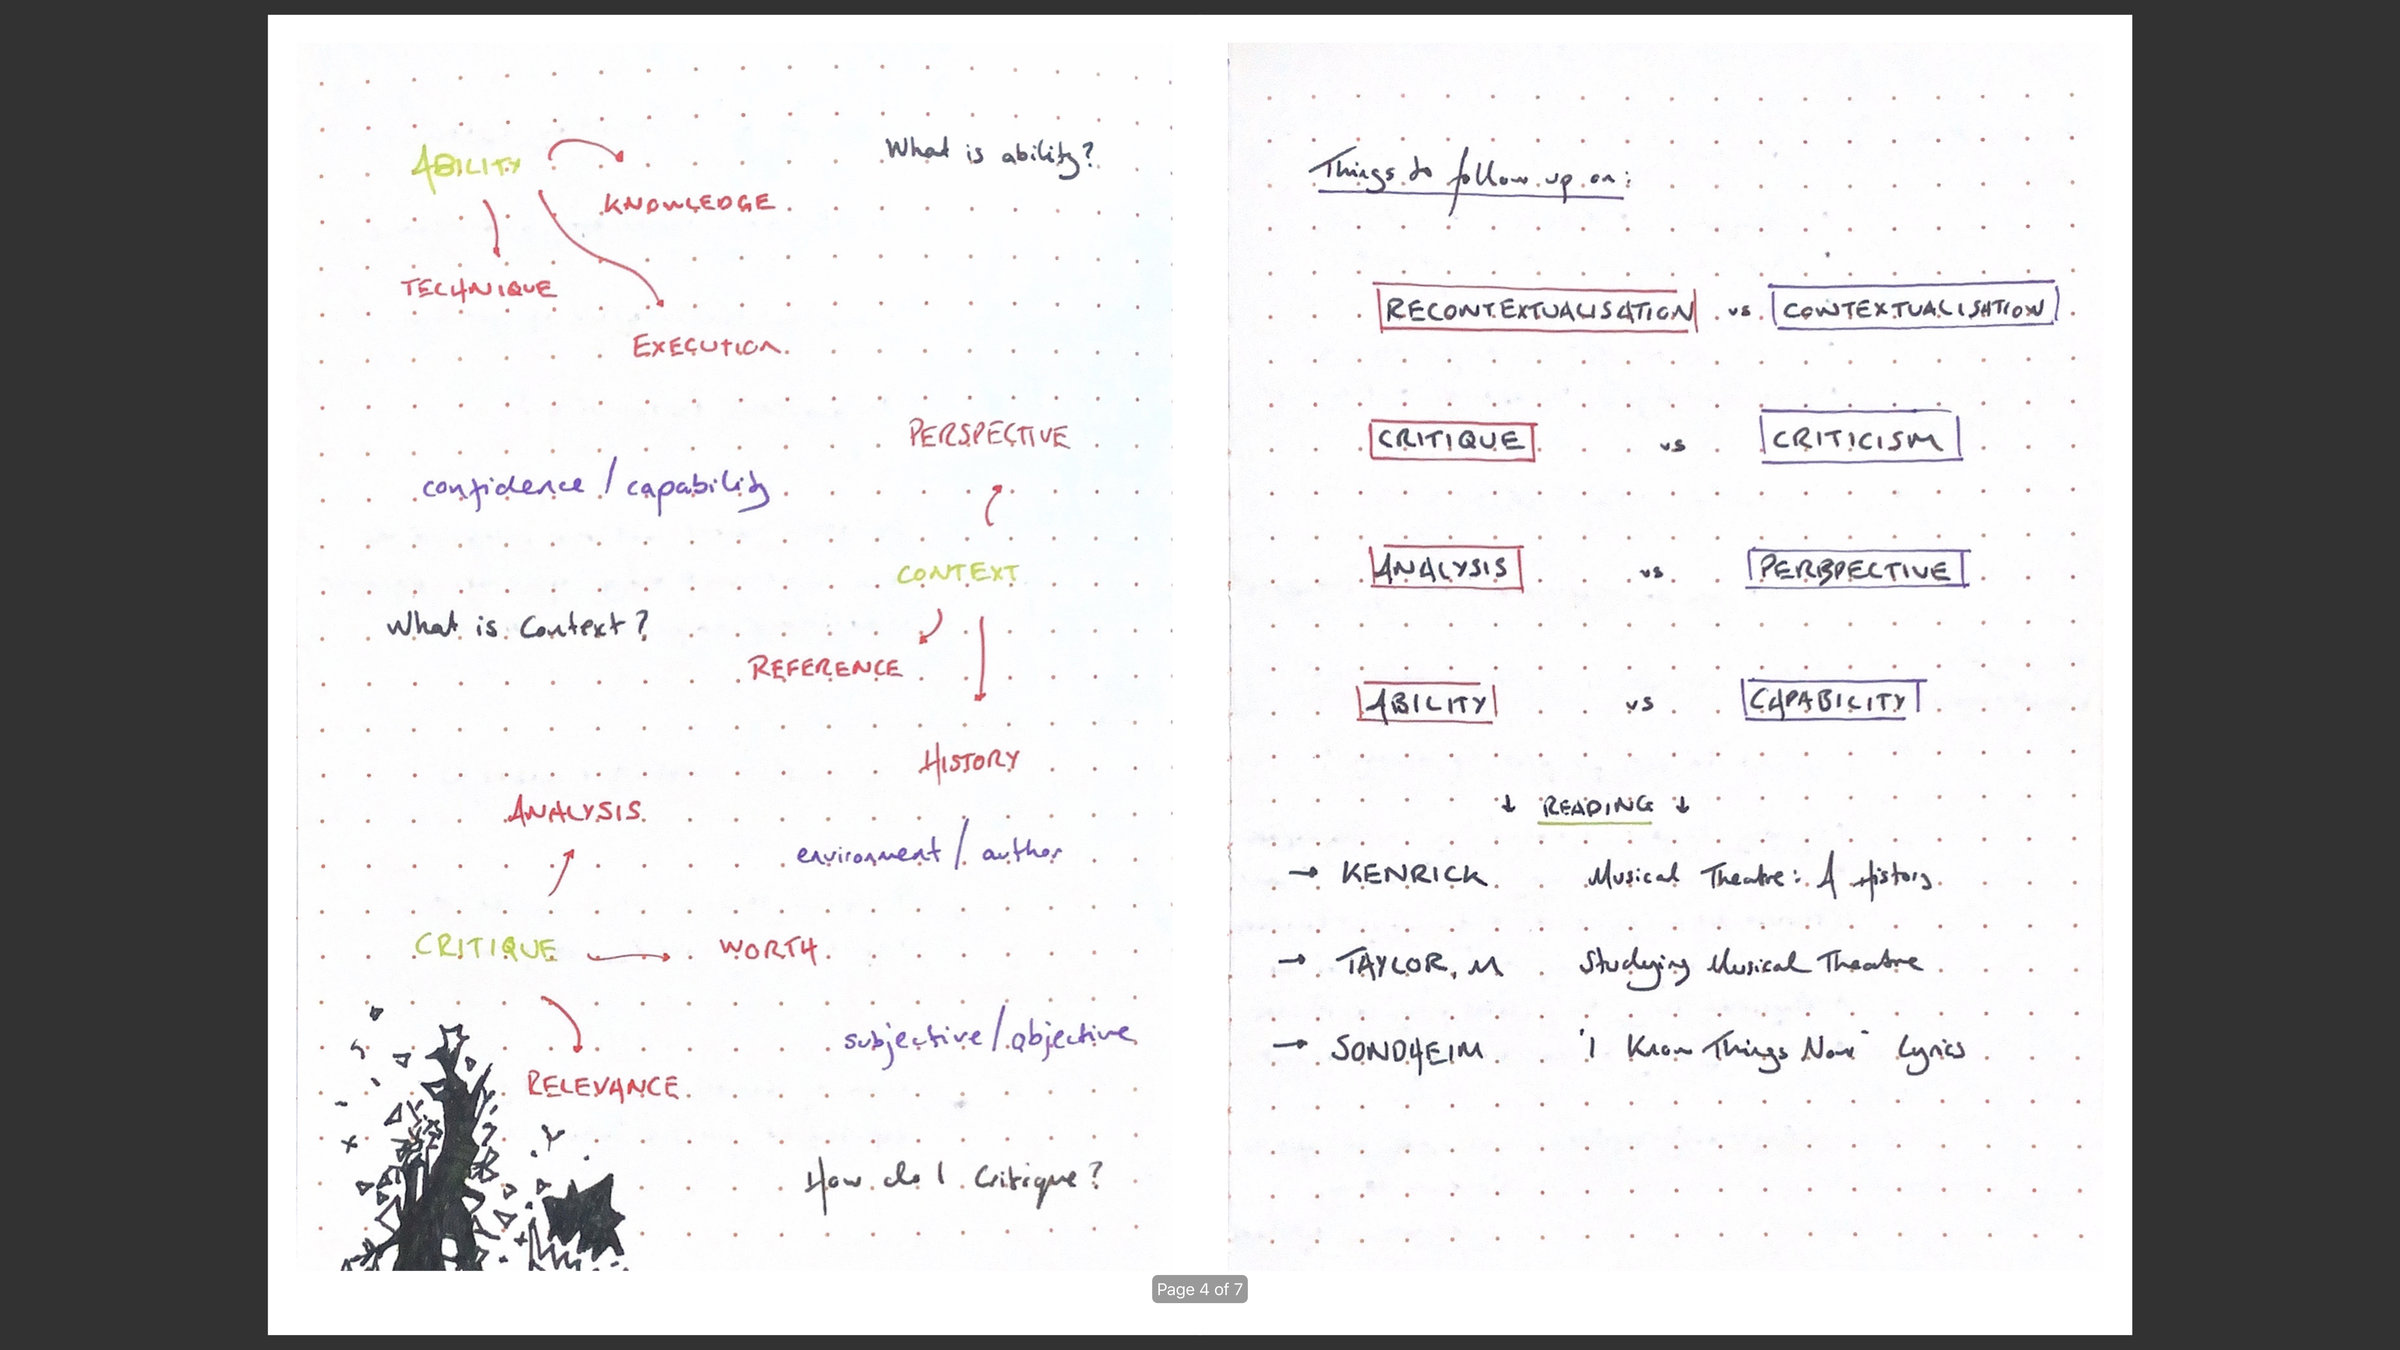 ABILITY
What is ability?
KNOWLEDGE
TECHNIQUE
EXECUTION
PERSPECTIVE
confidence / capability
CONTEXT
What is Context?
REFERENCE
HISTORY
ANALYSIS
environment / author
CRITIQUE
WORTH
subjective / objective
RELEVANCE
How do I Critique?
Things to follow up on:
RECONTEXTUALISATION vs CONTEXTUALISATION
CRITIQUE vs CRITICISM
ANALYSIS vs PERSPECTIVE
ABILITY vs CAPABILITY
↓ READING ↓
→ KENRICK Musical Theatre: A History
→ TAYLOR, M Studying Musical Theatre
→ SONDHEIM "I Know Things Now" Lyrics
Page 4 of 7